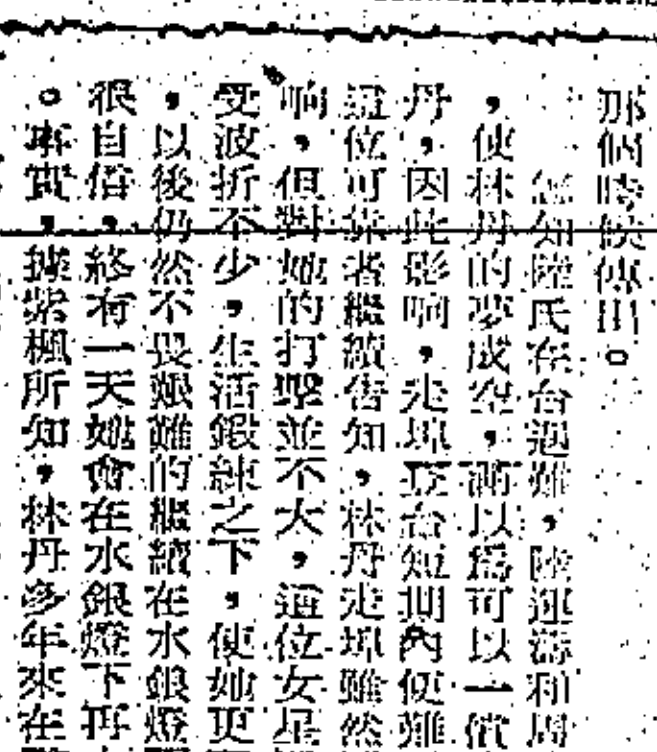 那個時候傳出。
怎知陸氏在台遇難，陸運濤和周
，使林丹的夢成空，滿以為可以一償
丹，因此影响，走埠至台短期內便難
這位可靠者繼續告知，林丹走埠雖然
响，但對她的打擊並不大，這位女星
受波折不少，生活鍛練之下，使她更
，以後仍然不畏艱難的繼續在水銀燈
很自信，終有一天她會在水銀燈下再
。事實，據紫楓所知，林丹多年來在